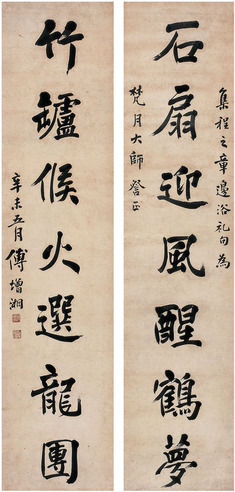 石扇迎風醒鶴夢
集程之章邊浴礼句為
梵月大師詧正
竹罏候火選龍團
辛未五月傅增湘